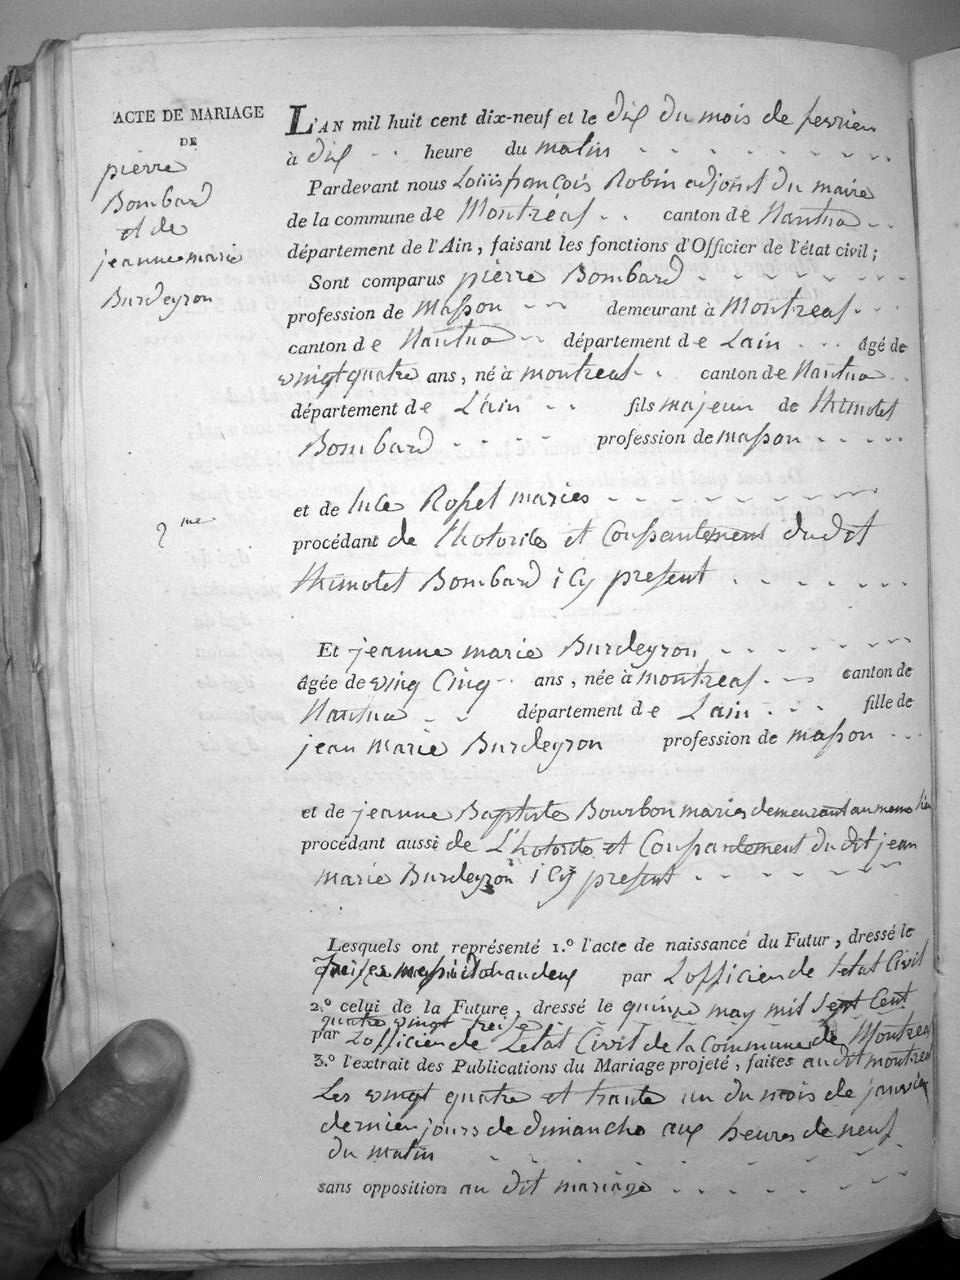 ACTE DE MARIAGE
DE
pierre
Bombard
et de
jeanne marie
Burdeyron
2me
L'AN mil huit cent dix-neuf et le dix du mois de fevrier
à dix heure du matin
Pardevant nous Louis françois Robin adjoint du maire
de la commune de Montréal canton de Nantua
département de l'Ain, faisant les fonctions d'Officier de l'état civil;
Sont comparus pierre Bombard
profession de masson demeurant à Montreal
canton de Nantua département de Lain âgé de
vingt quatre ans, né à montreal canton de Nantua
département de L'ain fils majeur de thimotet
Bombard profession de masson
et de luce Rosset maries
procédant de lhotorite et Consantement du dit
thimotet Bombard icy present
Et jeanne marie Burdeyron
âgée de vinq Cinq ans, née à montreal canton de
Nantua département de Lain fille de
jean marie Burdeyron profession de masson
et de jeanne Baptiste Bourbon maries demeurant au meme lieu
procédant aussi de L'hotorite et Consantement du dit jean
marie Burdeyron icy present
Lesquels ont représenté 1.º l'acte de naissance du Futur, dressé le
par Lofficier de letat Civil
2.º celui de la Future, dressé le quinze may mil sept Cent
quatre vingt treize
par Lofficier de Letat Civil de la Commune de Montreal
3.º l'extrait des Publications du Mariage projeté, faites au dit montreal
Les vingt quatre et trante un du mois de janvier
dernier jours de dimanche aux heures de neuf
du matin
sans opposition au dit mariage